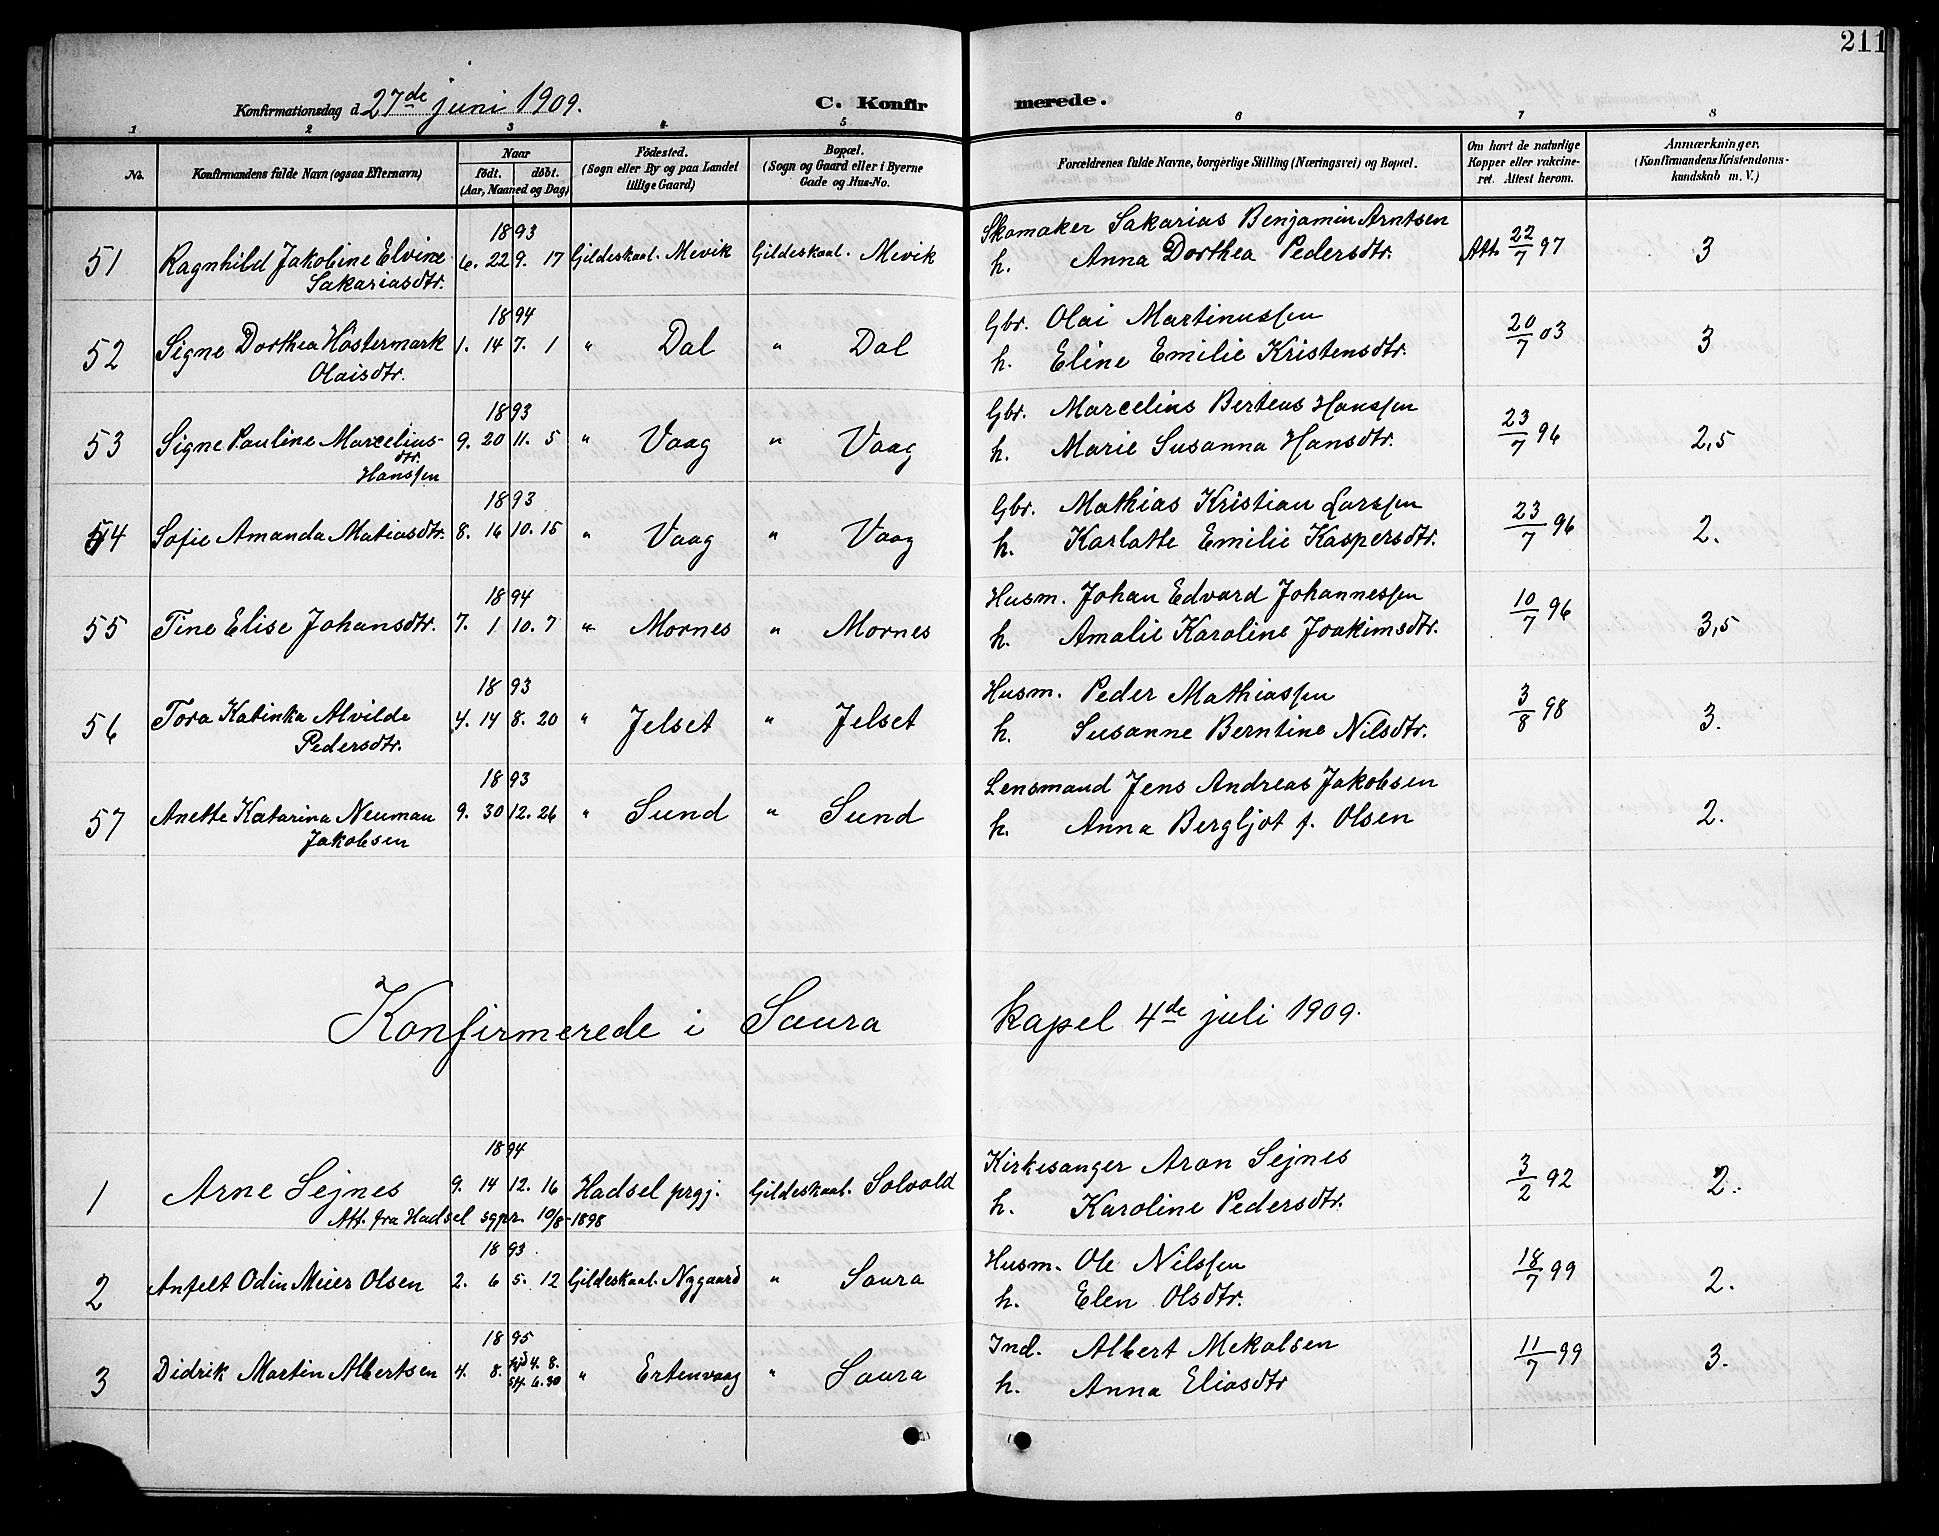 211
Konfirmationsdag d. 27de juni 1909. C. Konfir merede.
1 2 3 4 5 6 7 8
No. Konfirmandens fulde Navn (ogsaa Efternavn) Naar födt. döbt. (Aar, Maaned og Dag) Födested. (Sogn eller By og paa Landet tillige Gaard) Bopæl. (Sogn og Gaard eller i Byerne Gade og Hus-No. Forældrenes fulde Navne, borgerlige Stilling (Næringsvei) og Bopæl. Om havt de naturlige Kopper eller vakcineret. Attest herom. Anmærkninger, (Konfirmandens Kristendomskundskab m. V.)
1893 Skomaker Sakarias Benjamin Arntsen
51 Ragnhild Jakobine Elvine 6. 22 9. 17 Gildeskaal. Mevik Gildeskaal. Mevik h. Anna Dorthea Pedersdtr. Att. 22/7 97 3
Sakariasdtr.
1894 Gbr. Olai Martinussen
52 Signe Dorthea Höstermark 1. 14 7. 1 " Dal " Dal h. Eline Emilie Kristensdtr. 20/7 03 3
Olaisdtr.
1893 Gbr. Marcelius Berteus Hanssen
53 Signe Pauline Marcelius- 9. 20 11. 5 " Vaag " Vaag h. Marie Susanna Hansdtr. 23/7 96 2,5
dtr.
Hanssen
1893 Gbr. Mathias Kristian Larssen
54 Sofie Amanda Matiasdtr. 8. 16 10. 15 " Vaag " Vaag h. Karlotte Emilie Kaspersdtr. 23/7 96 2.
1894 Husm. Johan Edvard Johannessen
55 Tine Elise Johansdtr. 7. 1 10. 7 " Mornes " Mornes h. Amalie Karoline Joakimsdtr. 10/7 96 3,5
1893 Husm. Peder Mathiassen
56 Tora Katinka Alvilde 4. 14 8. 20 " Jelset " Jelset h. Susanne Berntine Nilsdtr. 3/8 98 3.
Pedersdtr.
1893 Lensmand Jens Andreas Jakobsen
57 Anette Katarina Neuman 9. 30 12. 26 " Sund " Sund h. Anna Bergljot f. Olsen 2.
Jakobsen
Konfirmerede i Saura kapel 4de juli 1909.
1894 Kirkesanger Aron Sejnes
1 Arne Sejnes 9. 14 12. 16 Hadsel prgj. Gildeskaal. Solvold h. Karoline Pedersdtr. 3/2 92 2.
Att. fra Hadsel sgpr. 10/8-1898
1893. Husm. Ole Nilssen
2 Anfelt Odin Meier Olsen 2. 6 5. 12 Gildeskaal. Nygaard " Saura h. Elen Olsdtr. 18/7 99 2.
1895 Ind. Albert Mekalsen
3 Didrik Martin Albertsen 4. 8. hjd 4. 8. st. 6. 30 " Ertenvaag " Saura h. Anna Eliasdtr 11/7 99 3.